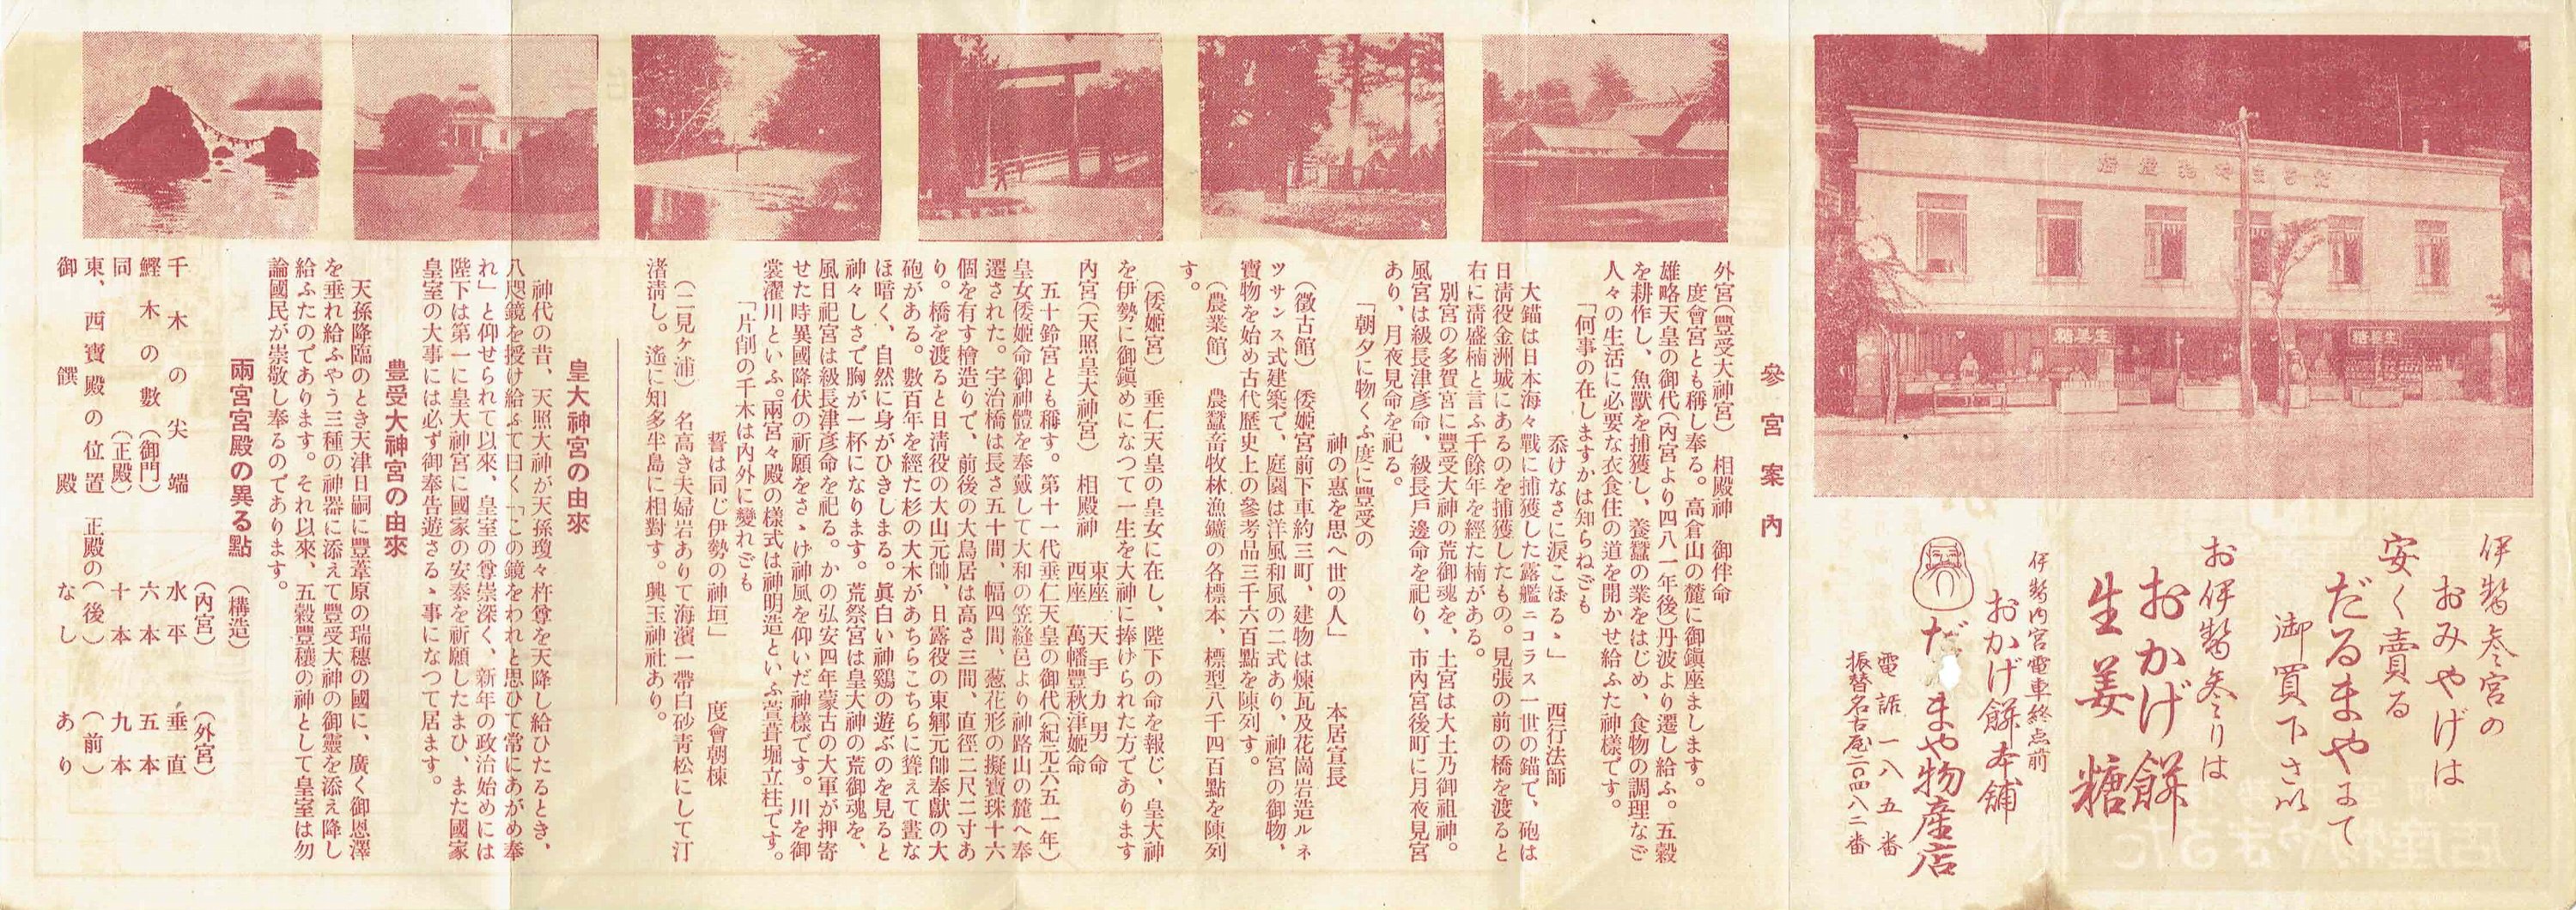 だるまや物産店
生姜糖
生姜糖
伊勢参宮の
おみやげは
安く賣る
だるまやにて
御買下さい
お伊勢参りは
おかげ餅
生姜糖
伊勢内宮電車終点前
おかげ餅本舗
だるまや物産店
電話一八五番
振替名古屋二〇四八二番
參宮案內
外宮(豐受大神宮) 相殿神 御伴命
度會宮とも稱し奉る。高倉山の麓に御鎭座まします。
雄略天皇の御代(內宮より四八一年後)丹波より遷し給ふ。五穀
を耕作し、魚獸を捕獲し、養蠶の業をはじめ、食物の調理なご
人々の生活に必要な衣食住の道を開かせ給ふた神樣です。
「何事の在しますかは知らねごも
忝けなさに淚こほるゝ」 西行法師
大錨は日本海々戰に捕獲した露艦ニコラス一世の錨で、砲は
日淸役金洲城にあるのを捕獲したもの。見張の前の橋を渡ると
右に淸盛楠と言ふ千餘年を經た楠がある。
別宮の多賀宮に豐受大神の荒御魂を、土宮は大土乃御祖神。
風宮は級長津彥命、級長戶邊命を祀り、市內宮後町に月夜見宮
あり、月夜見命を祀る。
「朝夕に物くふ度に豐受の
神の惠を思へ世の人」 本居宣長
(徵古館) 倭姬宮前下車約三町、建物は煉瓦及花崗岩造ルネ
ツサンス式建築で、庭園は洋風和風の二式あり、神宮の御物、
寶物を始め古代歷史上の參考品三千六百點を陳列す。
(農業館) 農蠶畜牧林漁鑛の各標本、標型八千四百點を陳列
す。
(倭姬宮) 垂仁天皇の皇女に在し、陛下の命を報じ、皇大神
を伊勢に御鎭めになつて一生を大神に捧けられた方であります
內宮(天照皇大神宮) 相殿神 東座 天手力男命
西座 萬幡豐秋津姬命
五十鈴宮とも稱す。第十一代垂仁天皇の御代(紀元六五一年)
皇女倭姬命御神體を奉戴して大和の笠縫邑より神路山の麓へ奉
遷された。宇治橋は長さ五十間、幅四間、葱花形の擬寶珠十六
個を有す檜造りで、前後の大鳥居は高さ三間、直徑二尺二寸あ
り。橋を渡ると日淸役の大山元帥、日露役の東鄕元帥奉獻の大
砲がある。數百年を經た杉の大木があちらこちらに聳えて晝な
ほ暗く、自然に身がひきしまる。眞白い神鷄の遊ぶのを見ると
神々しさで胸が一杯になります。荒祭宮は皇大神の荒御魂を、
風日祀宮は級長津彥命を祀る。かの弘安四年蒙古の大軍が押寄
せた時異國降伏の祈願をさゝげ神風を仰いだ神樣です。川を御
裳濯川といふ。兩宮々殿の樣式は神明造といふ萱葺堀立柱です。
「片削の千木は內外に變れごも
誓は同じ伊勢の神垣」 度會朝棟
(二見ヶ浦) 名高き夫婦岩ありて海濱一帶白砂靑松にして汀
渚淸し。遙に知多半島に相對す。興玉神社あり。
皇大神宮の由來
神代の昔、天照大神が天孫瓊々杵尊を天降し給ひたるとき、
八咫鏡を授け給ふて曰く「この鏡をわれと思ひて常にあがめ奉
れ」と仰せられて以來、皇室の尊崇深く、新年の政治始めには
陛下は第一に皇大神宮に國家の安泰を祈願したまひ、また國家
皇室の大事には必ず御奉告遊さるゝ事になつて居ます。
豐受大神宮の由來
天孫降臨のとき天津日嗣に豐葦原の瑞穗の國に、廣く御恩澤
を垂れ給ふやう三種の神器に添えて豐受大神の御靈を添え降し
給ふたのであります。それ以來、五穀豐穰の神として皇室は勿
論國民が崇敬し奉るのであります。
兩宮宮殿の異る點
(構造) (內宮) (外宮)
千木の尖端 水平 垂直
鰹木の數(御門) 六本 五本
同 (正殿) 十本 九本
東、西寶殿の位置 正殿の(後) (前)
御饌殿 なし あり